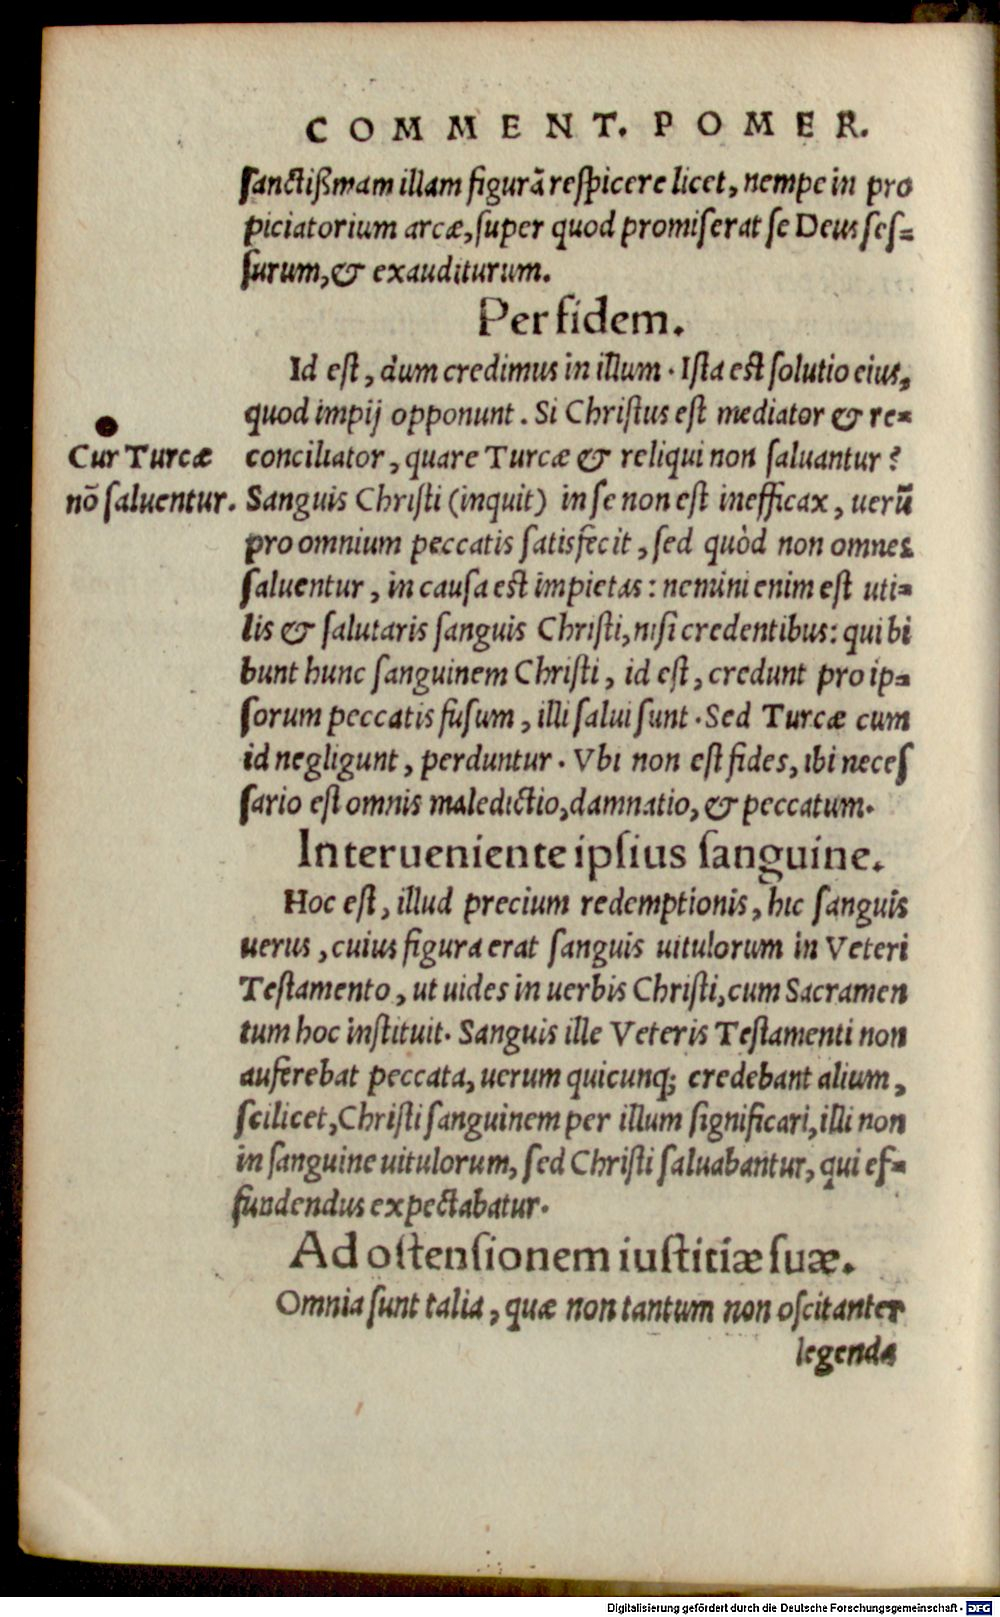 COMMENT. POMER.
sanctißmam illam figurā respicere licet, nempe in pro
piciatorium arcæ, super quod promiserat se Deus ses-
surum, & exauditurum.
Per fidem.
Id est, dum credimus in illum. Ista est solutio eius,
quod impij opponunt. Si Christus est mediator & re-
Cur Turcæ
nō saluentur.
conciliator, quare Turcæ & reliqui non saluantur?
Sanguis Christi (inquit) in se non est inefficax, uerū
pro omnium peccatis satisfecit, sed quòd non omnes
saluentur, in causa est impietas: nemini enim est uti-
lis & salutaris sanguis Christi, nisi credentibus: qui bi
bunt hunc sanguinem Christi, id est, credunt pro ip-
sorum peccatis fusum, illi salui sunt. Sed Turcæ cum
id negligunt, perduntur. Vbi non est fides, ibi neces
sario est omnis maledictio, damnatio, & peccatum.
Interueniente ipsius sanguine.
Hoc est, illud precium redemptionis, hic sanguis
uerus, cuius figura erat sanguis uitulorum in Veteri
Testamento, ut uides in uerbis Christi, cum Sacramen
tum hoc instituit. Sanguis ille Veteris Testamenti non
auferebat peccata, uerum quicunq; credebant alium,
scilicet, Christi sanguinem per illum significari, illi non
in sanguine uitulorum, sed Christi saluabantur, qui ef-
fundendus expectabatur.
Ad ostensionem iustitiæ suæ.
Omnia sunt talia, quæ non tantum non oscitanter
legenda
Digitalisierung gefördert durch die Deutsche Forschungsgemeinschaft - DFG